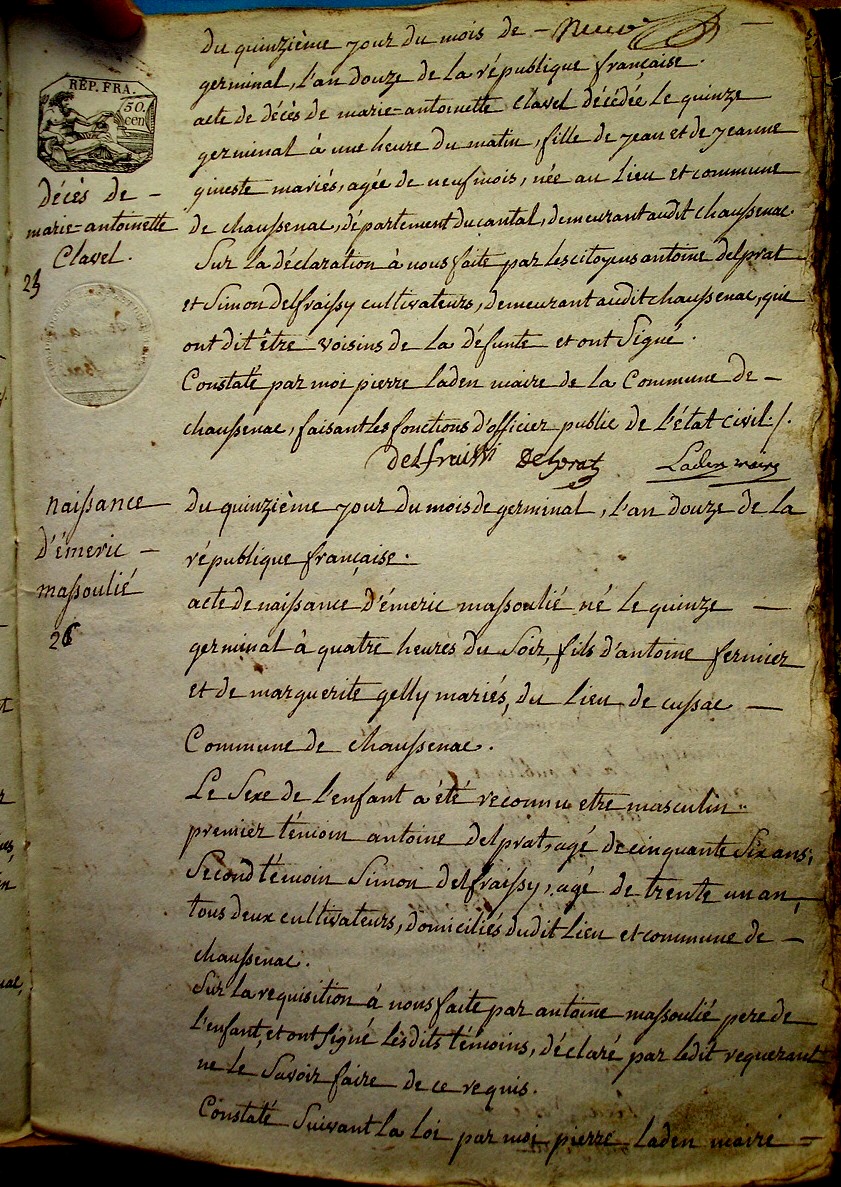 du quinzième jour du mois de —
germinal, l'an douze de la république française.
acte de décès de marie=antoinette Clavel décédée, le quinze
germinal à une heure du matin, fille de jean et de jeanne
gineste mariés, agée de neuf mois, née au lieu et commune
de chaussenac, département du cantal, demeurant audit chaussenac.
Sur la déclaration à nous faite par les citoyens antoine delprat
et Simon delfraissy cultivateurs, demeurant audit chaussenac, qui
ont dit être voisins de la défunte et ont Signé.
Constaté par moi pierre laden maire de la Commune de —
chaussenac, faisant les fonctions d'officier public de l'état civil./.
delfraissi Delprat Laden maire
RÉP. FRA.
50.
cen
décès de —
marie=antoinette
Clavel.
naissance —
d'émeric —
massoulié
26
du quinzième jour du mois de germinal, l'an douze de la
république française.
acte de naissance d'émeric massoulié né le quinze —
germinal à quatre heures du Soir, fils d'antoine fermier
et de marguerite gelly mariés, du lieu de cussac —
Commune de chaussenac.
Le Sexe de l'enfant a été reconnu etre masculin..
premier témoin antoine delprat, agé de cinquante Six ans;
Second témoin Simon delfraissy, agé de trente un an,
tous deux cultivateurs, domiciliés dudit lieu et commune de —
chaussenac.
Sur la requisition à nous faite par antoine massoulié pere de
l'enfant, et ont Signé lesdits témoins, déclaré par ledit requerant
ne le Savoir faire de ce requis.
Constaté Suivant la loi par moi pierre laden maire =